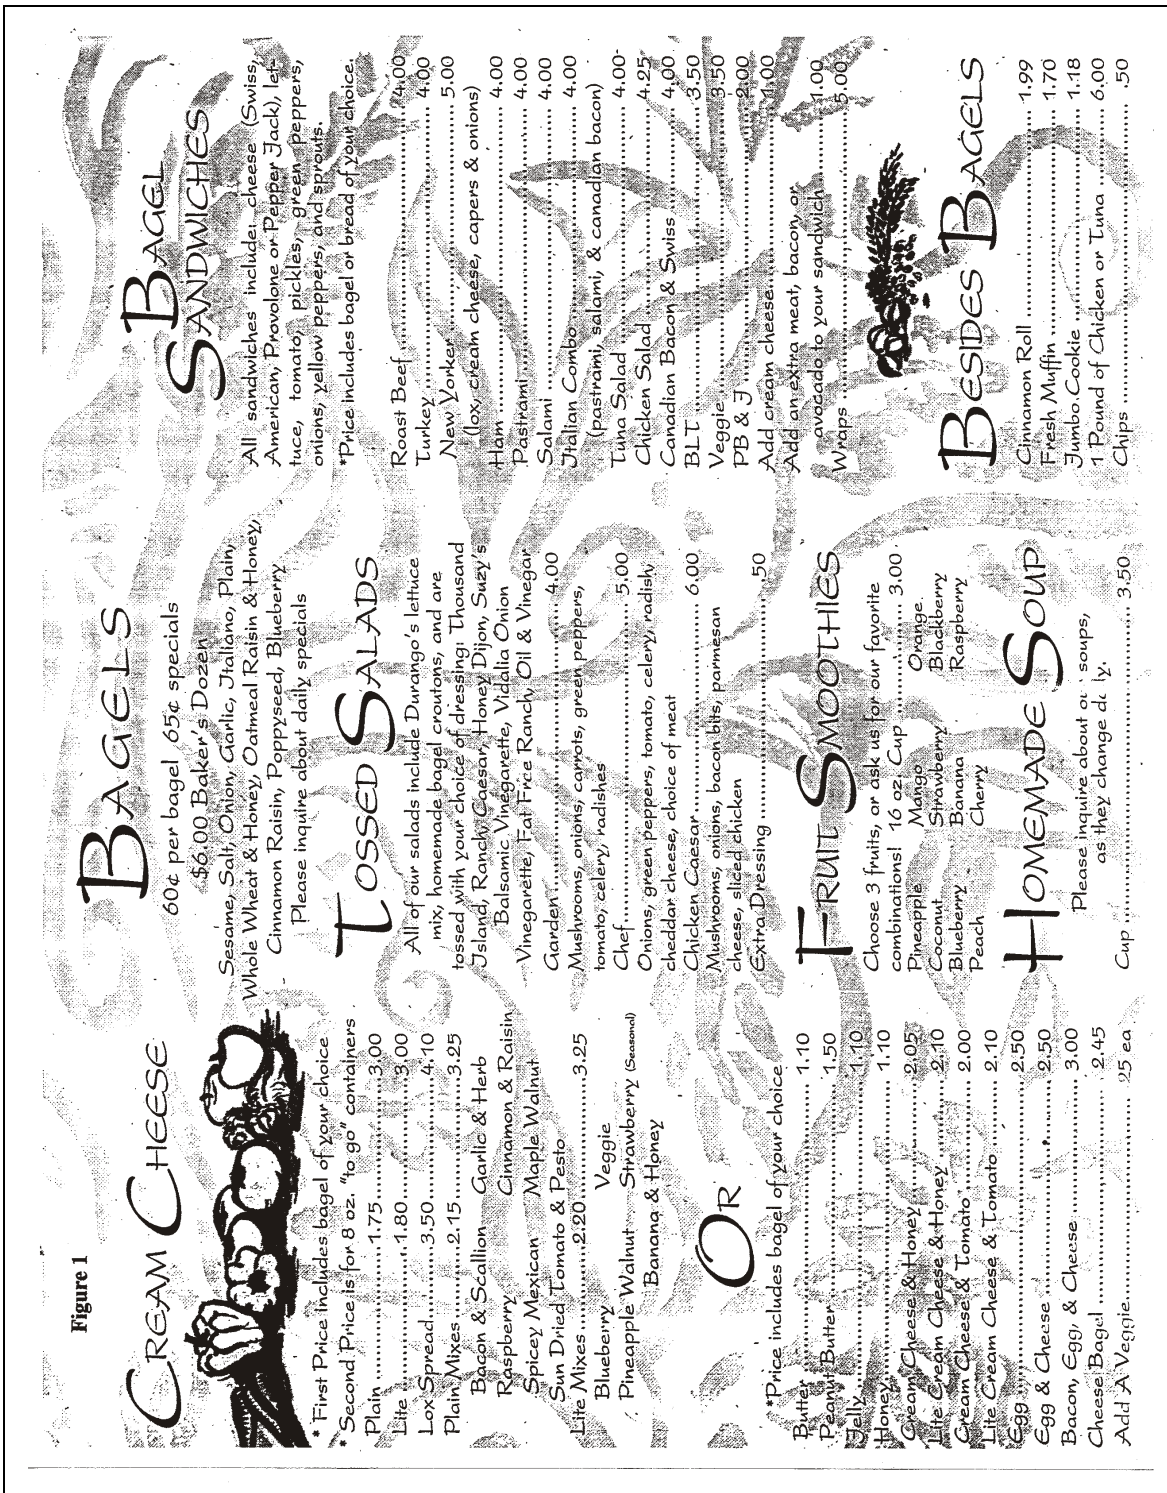 Figure 1
CREAM CHEESE
* First Price includes bagel of your choice
* Second Price is for 8 oz. "to go" containers
Plain .................. 1.75 .................. 3.00
Lite .................. 1.80 .................. 3.00
Lox Spread .................. 3.50 .................. 4.10
Plain Mixes .................. 2.15 .................. 3.25
Bacon & Scallion Garlic & Herb
Raspberry Cinnamon & Raisin
Spicey Mexican Maple Walnut
Sun Dried Tomato & Pesto
Lite Mixes .................. 2.20 .................. 3.25
Blueberry Veggie
Pineapple Walnut Strawberry (Seasonal)
Banana & Honey
OR
*Price includes bagel of your choice
Butter .................. 1.10
Peanut Butter .................. 1.50
Jelly .................. 1.10
Honey .................. 1.10
Cream Cheese & Honey .................. 2.05
Lite Cream Cheese & Honey .................. 2.10
Cream Cheese & Tomato .................. 2.00
Lite Cream Cheese & Tomato .................. 2.10
Egg .................. 2.50
Egg & Cheese .................. 2.50
Bacon, Egg, & Cheese .................. 3.00
Cheese Bagel .................. 2.45
Add A Veggie .................. .25 ea
BAGELS
60¢ per bagel 65¢ specials
$6.00 Baker's Dozen
Sesame, Salt, Onion, Garlic, Italiano, Plain,
Whole Wheat & Honey, Oatmeal Raisin & Honey,
Cinnamon Raisin, Poppyseed, Blueberry
Please inquire about daily specials
TOSSED SALADS
All of our salads include Durango's lettuce
mix, homemade bagel croutons, and are
tossed with your choice of dressing: Thousand
Island, Ranch, Caesar, Honey Dijon, Suzy's
Balsamic Vinegarette, Vidalia Onion
Vinegarette, Fat Free Ranch, Oil & Vinegar
Garden .................. 4.00
Mushrooms, onions, carrots, green peppers,
tomato, celery, radishes
Chef .................. 5.00
Onions, green peppers, tomato, celery, radish,
cheddar cheese, choice of meat
Chicken Caesar .................. 6.00
Mushrooms, onions, bacon bits, parmesan
cheese, sliced chicken
Extra Dressing .................. .50
FRUIT SMOOTHIES
Choose 3 fruits, or ask us for our favorite
combinations! 16 oz. Cup .................. 3.00
Pineapple Mango Orange
Coconut Strawberry Blackberry
Blueberry Banana Raspberry
Peach Cherry
HOMEMADE SOUP
Please inquire about soups,
as they change
Cup .................. 3.50
BAGEL
SANDWICHES
All sandwiches include cheese (Swiss,
American, Provolone or Pepper Jack), let-
tuce, tomato, pickles, green peppers,
onions, yellow peppers, and sprouts.
*Price includes bagel or bread of your choice.
Roast Beef .................. 4.00
Turkey .................. 4.00
New Yorker .................. 5.00
(lox, cream cheese, capers & onions)
Ham .................. 4.00
Pastrami .................. 4.00
Salami .................. 4.00
Italian Combo .................. 4.00
(pastrami, salami, & canadian bacon)
Tuna Salad .................. 4.00
Chicken Salad .................. 4.25
Canadian Bacon & Swiss .................. 4.00
BLT .................. 3.50
Veggie .................. 3.50
PB & J .................. 2.00
Add cream cheese .................. 1.00
Add an extra meat, bacon, or
avocado to your sandwich .................. 1.00
Wraps .................. 5.00
BESIDES BAGELS
Cinnamon Roll .................. 1.99
Fresh Muffin .................. 1.70
Jumbo Cookie .................. 1.18
1 Pound of Chicken or Tuna .... 6.00
Chips .................. .50